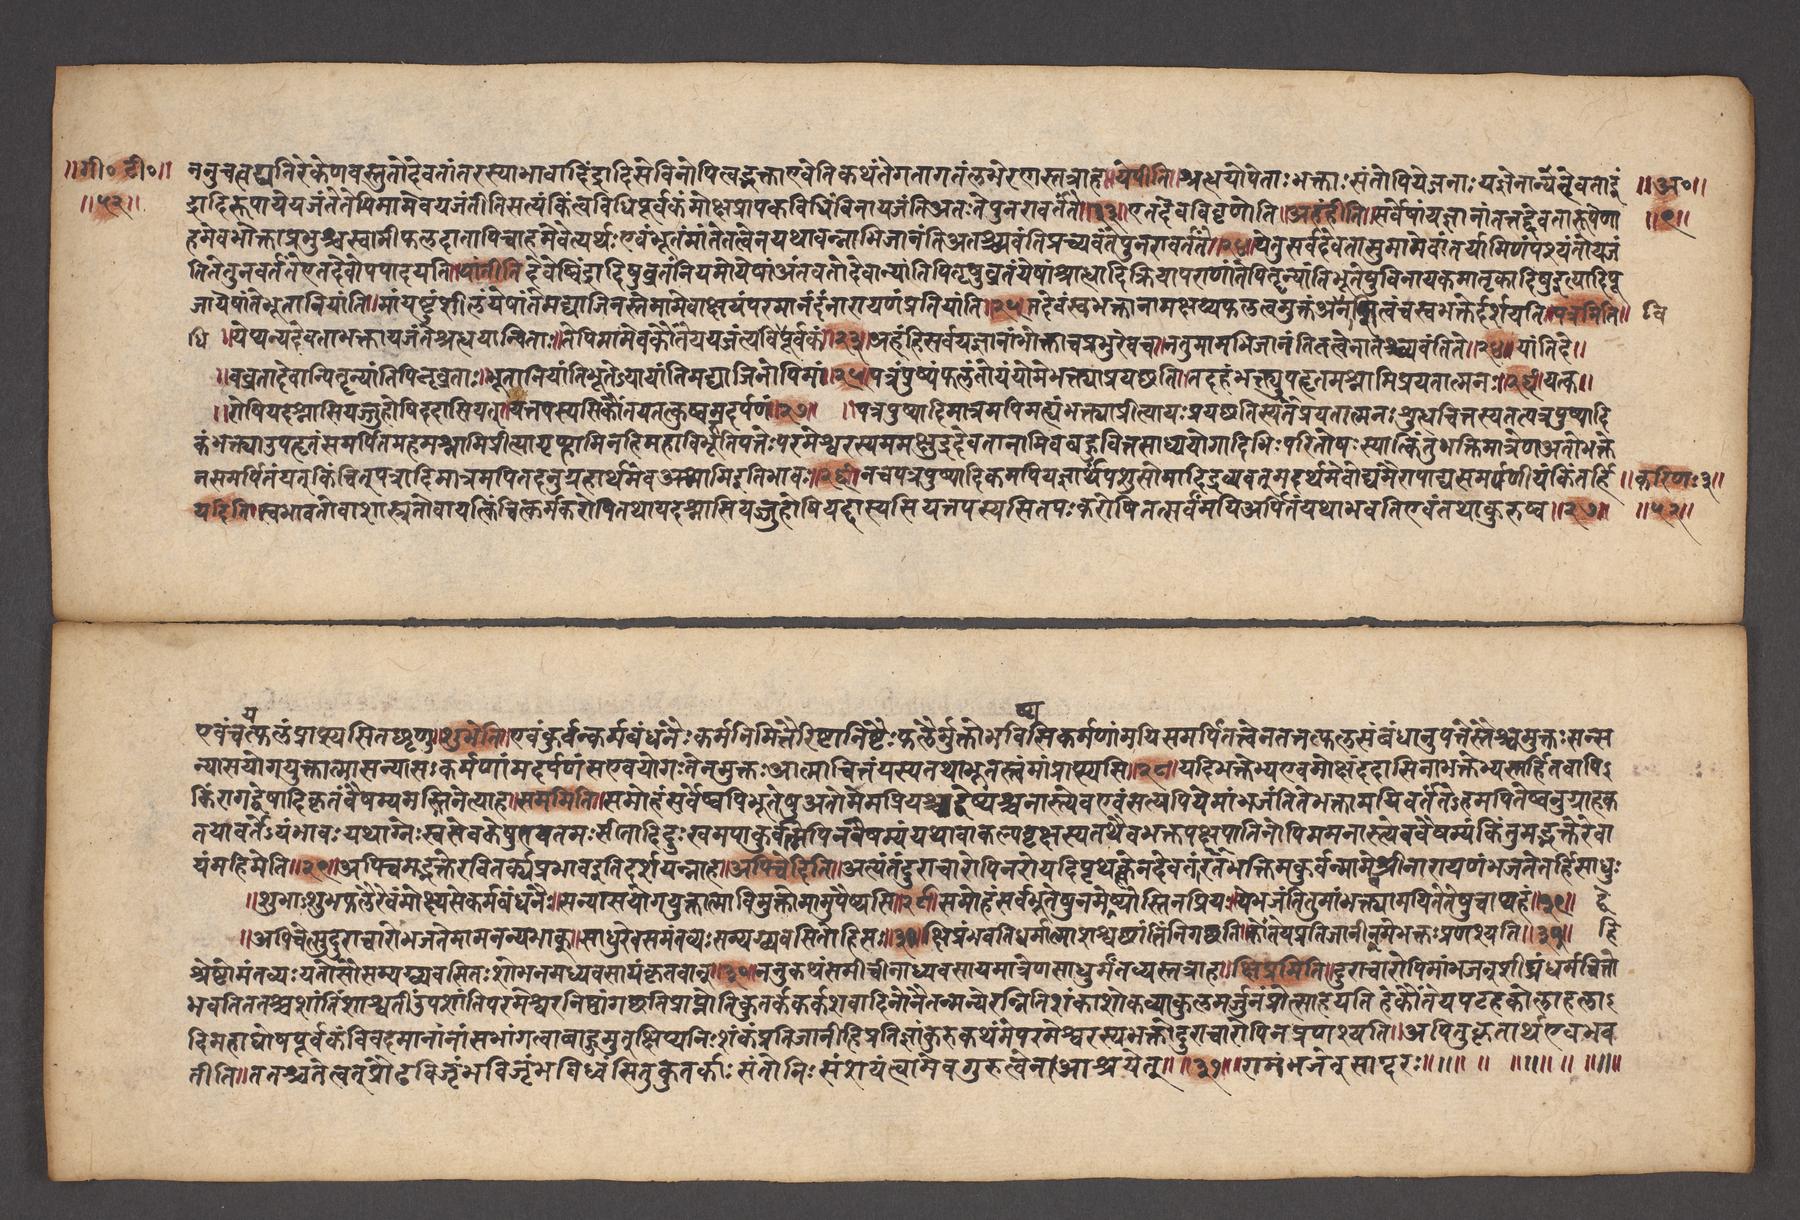 ॥गी० टी०॥ ननुचत्वद्व्यतिरेकेणवस्तुतोदेवतांतरस्याभावादिंद्रादिसेविनोपित्वद्भक्ताएवेतिकथंतेगतागतंलभेरंस्तत्राह॥येपीति॥श्रद्धयोपेताःभक्ताःसंतोपियेजनाःयज्ञेनान्यदेवताइं ॥अ०॥
॥५२॥ द्रादिरूपायेयजंतेतेपिमामेवयजंतीतिसत्यंकिंत्वविधिपूर्वकंमोक्षप्रापकविधिंविनायजंतिअतःतेपुनरावर्तंते॥२३॥एतदेवविवृणोति॥अहंहीति॥सर्वेषांयज्ञानांतत्तद्देवतारूपेणा ॥९॥
हमेवभोक्ताप्रभुश्चस्वामीफलदातापिचाहमेवेत्यर्थःएवंभूतंमांतेतत्वेनयथावन्नाभिजानंतिअतश्च्यवंतिप्रच्यवंतेपुनरावर्तंते॥२४॥येतुसर्वदेवतासुमामेवांतर्यामिणंपश्यंतोयजं
तितेतुनवर्तंतेएतदेवोपपादयति॥यांतीति॥देवेष्विंद्रादिषुव्रतंनियमोयेषांअंतवतोदेवान्यांतिपितृषुव्रतंयेषांश्राद्धादिक्रियापराणांतेपितॄन्यांतिभूतेषुविनायकमातृकादिषुइत्यादिपू
जायेषांतेभूतानियांति॥मांयष्टुंशीलंयेषांतेमद्याजिनस्तेमामेवाक्षयंपरमानंदंनारायणंप्रतियांति॥२५॥तदेवंस्वभक्तानामक्षय्यफलत्वमुक्तंअनायासत्वंचस्वभक्तेर्दर्शयति॥पत्रमिति॥ वि
धि ॥येप्यन्यदेवताभक्तायजंतेश्रद्धयान्विताः॥तेपिमामेवकौंतेययजंत्यविपूर्वकं॥२३॥अहंहिसर्वयज्ञानांभोक्ताचप्रभुरेवच॥नतुमामभिजानंतितत्वेनातश्च्यवंतिते॥२४॥यांतिदे॥
॥वव्रतादेवान्पितॄन्यांतिपितृव्रताः॥भूतानियांतिभूतेज्यायांतिमद्याजिनोपिमां॥२५॥पत्रंपुष्पंफलंतोयंयोमेभक्त्याप्रयछति॥तदहंभक्त्युपहृतमश्नामिप्रयतात्मनः॥२६॥यत्क॥
॥रोषियदश्नासियज्जुहोषिददासियत्॥यत्तपस्यसिकौंतेयतत्कुरुष्वमदर्पणं॥२७॥ ॥पत्रपुष्पादिमात्रमपिमह्यंभक्त्याप्रीत्यायःप्रयछतिस्यतेप्रयतात्मनःशुद्धचित्तस्यतत्पत्रपुष्पादि
कंभक्त्याउपहृतंसमर्पितमहमश्नामिप्रीत्यागृण्हामिनहिमहाविभूतिपतेःपरमेश्वरस्यममक्षुद्रदेवतानामिवबहुवित्तसाध्ययोगादिभिःपरितोषःस्यात्किंतुभक्तिमात्रेणअतोभक्ते
नसमर्पितंयत्किंचित्पत्रादिमात्रमपितदनुग्रहार्थमेवअश्नामिइतिभावः॥२६॥नचपत्रपुष्पादिकमपियज्ञार्थंपशुसोमादिद्रव्यवत्मदर्थमेवोद्यमैरापाद्यसमर्पणीयंकिंतर्हि ॥करिणः३॥
यदिति॥स्वभावतोवाशास्त्रतोवायत्किंचित्कर्मकरोषितथायदश्नासियज्जुहोषियद्दास्यसियत्तपस्यसितपःकरोषितत्सर्वंमयिअर्पितंयथाभवतिएवंतथाकुरुष्व॥२७॥ ॥५२॥
य ष्य
एवंचत्फलंप्राप्स्यसितछृणु॥शुभेति॥एवंकुर्वन्कर्मबंधनैःकर्मनिमित्तैरिष्टानिष्टैःफलैर्मुक्तोभविसिकर्मणांमयिसमर्पितत्त्वेनतत्फलसंबंधानुपपत्तेस्तैश्चमुक्तःसन्स
न्यासयोगयुक्तात्मासन्यासःकर्मणांमदर्पणंसएवयोगःतेनमुक्तःआत्माचित्तंयस्यतथाभूतस्त्वंमांप्राप्स्यसि॥२८॥यदिभक्तेभ्यएवमोक्षंददासिनाभक्तेभ्यस्तर्हितवापिइ
किंरागद्वेषादिकृतंवैषम्यमस्तिनेत्याह॥सममिति॥समोहंसर्वेष्वपिभूतेषुअतोमेमप्रियश्चद्वेष्यश्चनास्त्येवएवंसत्यपियेमांभजंतितेभक्तामयिवर्तंतेऽहमपितेष्वनुग्राहक
तयावर्तेऽयंभावःयथाग्नेःस्वसेवकेषुएवतमःशीतादिदुःखमपाकुर्वतोपिनवैषम्यंयथावाकल्पवृक्षस्यतथैवभक्तपक्षपातिनोपिममनास्त्येववैषम्यंकिंतुमद्भक्तेरेवा
यंमहिमेति॥२९॥अपिचमद्भक्तेरवितर्क्यप्रभावइतिदर्शयन्नाह॥अपिचेदिति॥अत्यंतंदुराचारोपिनरोयदिपृथक्त्वेनदेवतांतरंतेभक्तिमकुर्वन्मामेवश्रीनारायणंभजतेतर्हिसाधुः
॥शुभाऽशुभफलैरेवंमोक्ष्यसेकर्मबंधनैः॥सन्यासयोगयुक्तात्माविमुक्तोमामुपैष्यसि॥२८॥समोहंसर्वभूतेषुनमेष्योस्तिनप्रियः॥येभजंतितुमांभक्त्यामयितेतेषुचाप्यहं॥२९॥ द्वे
॥अपिचेत्सुदुराचारोभजतेमामनन्यभाक्॥साधुरेवसमंतव्यःसम्यग्व्यवसितोहिसः॥३०॥क्षिप्रंभवतिधर्मात्माशश्वछांतिंनिगछति॥कौंतेयप्रतिजानीनमेभक्तःप्रणश्यति॥३१॥ हि
श्रेष्ठोमंतव्यःयतोसौसम्यग्व्यवसितःशोभनमध्यवसायंकृतवान्॥३०॥ननुकथंसमीचीनाध्यवसायमात्रेणसाधुर्मंतव्यस्तत्राह॥क्षिप्रमिति॥दुराचारोपिमांभजन्शीघ्रंधर्मचित्तो
भवतिततश्चशांतिंशाश्वतीउपशांतिपरमेश्वरनिष्ठांगछतिप्राप्नोतिकुतर्ककर्कशवादिनोनैतन्मन्येरन्नितिशंकाशोकव्याकुलमर्जुनंप्रोत्साहयति हेकौंतेयपटहकोलाहलाऽ
दिमहाघोषपूर्वकंविवदमानानांसभांगत्वाबाहुमुत्क्षिप्यनिःशंकंप्रतिजानीहिप्रतिज्ञांकुरुकथंमेपरमेश्वरस्यभक्तोदुराचारोपिनप्रणश्यति॥अपितुकृतार्थएवभव
तीति॥ततश्चतेत्वत्प्रौढविजृंभविजृंभविध्वंसितुकुतर्काःसंतोनिःसंशयंत्वामेवगुरुत्वेनआश्रयेत्॥॥३१॥॥रामंभजेत्सादरः॥॥॥ ॥ ॥॥॥ ॥ ॥॥॥